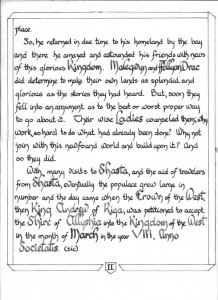 place.
So, he returned in due time to his homeland by the bay
and there he angered and astounded his friends with news
of this glorious Kingdom. Malegwyn and
did determine to make their own lands as splendid and
glorious as the stories they had heard. But, soon they
fell into an argument as to the best or worst proper way
to go about it. Their wise Ladies counseled them, why
work so hard to do what had already been done? Why not
join with this newfound world and build upon it? And
so they did.
With many visits to Shasta, and the aid of travelers
from Shasta, eventually the populace grew large in
number and the day came when the Crown of the West,
then King Andrew of Riga, was petitioned to accept
the Shire of into the Kingdom of the West
in the month of March in the year VIII, Anno
Societatis (sic)
II